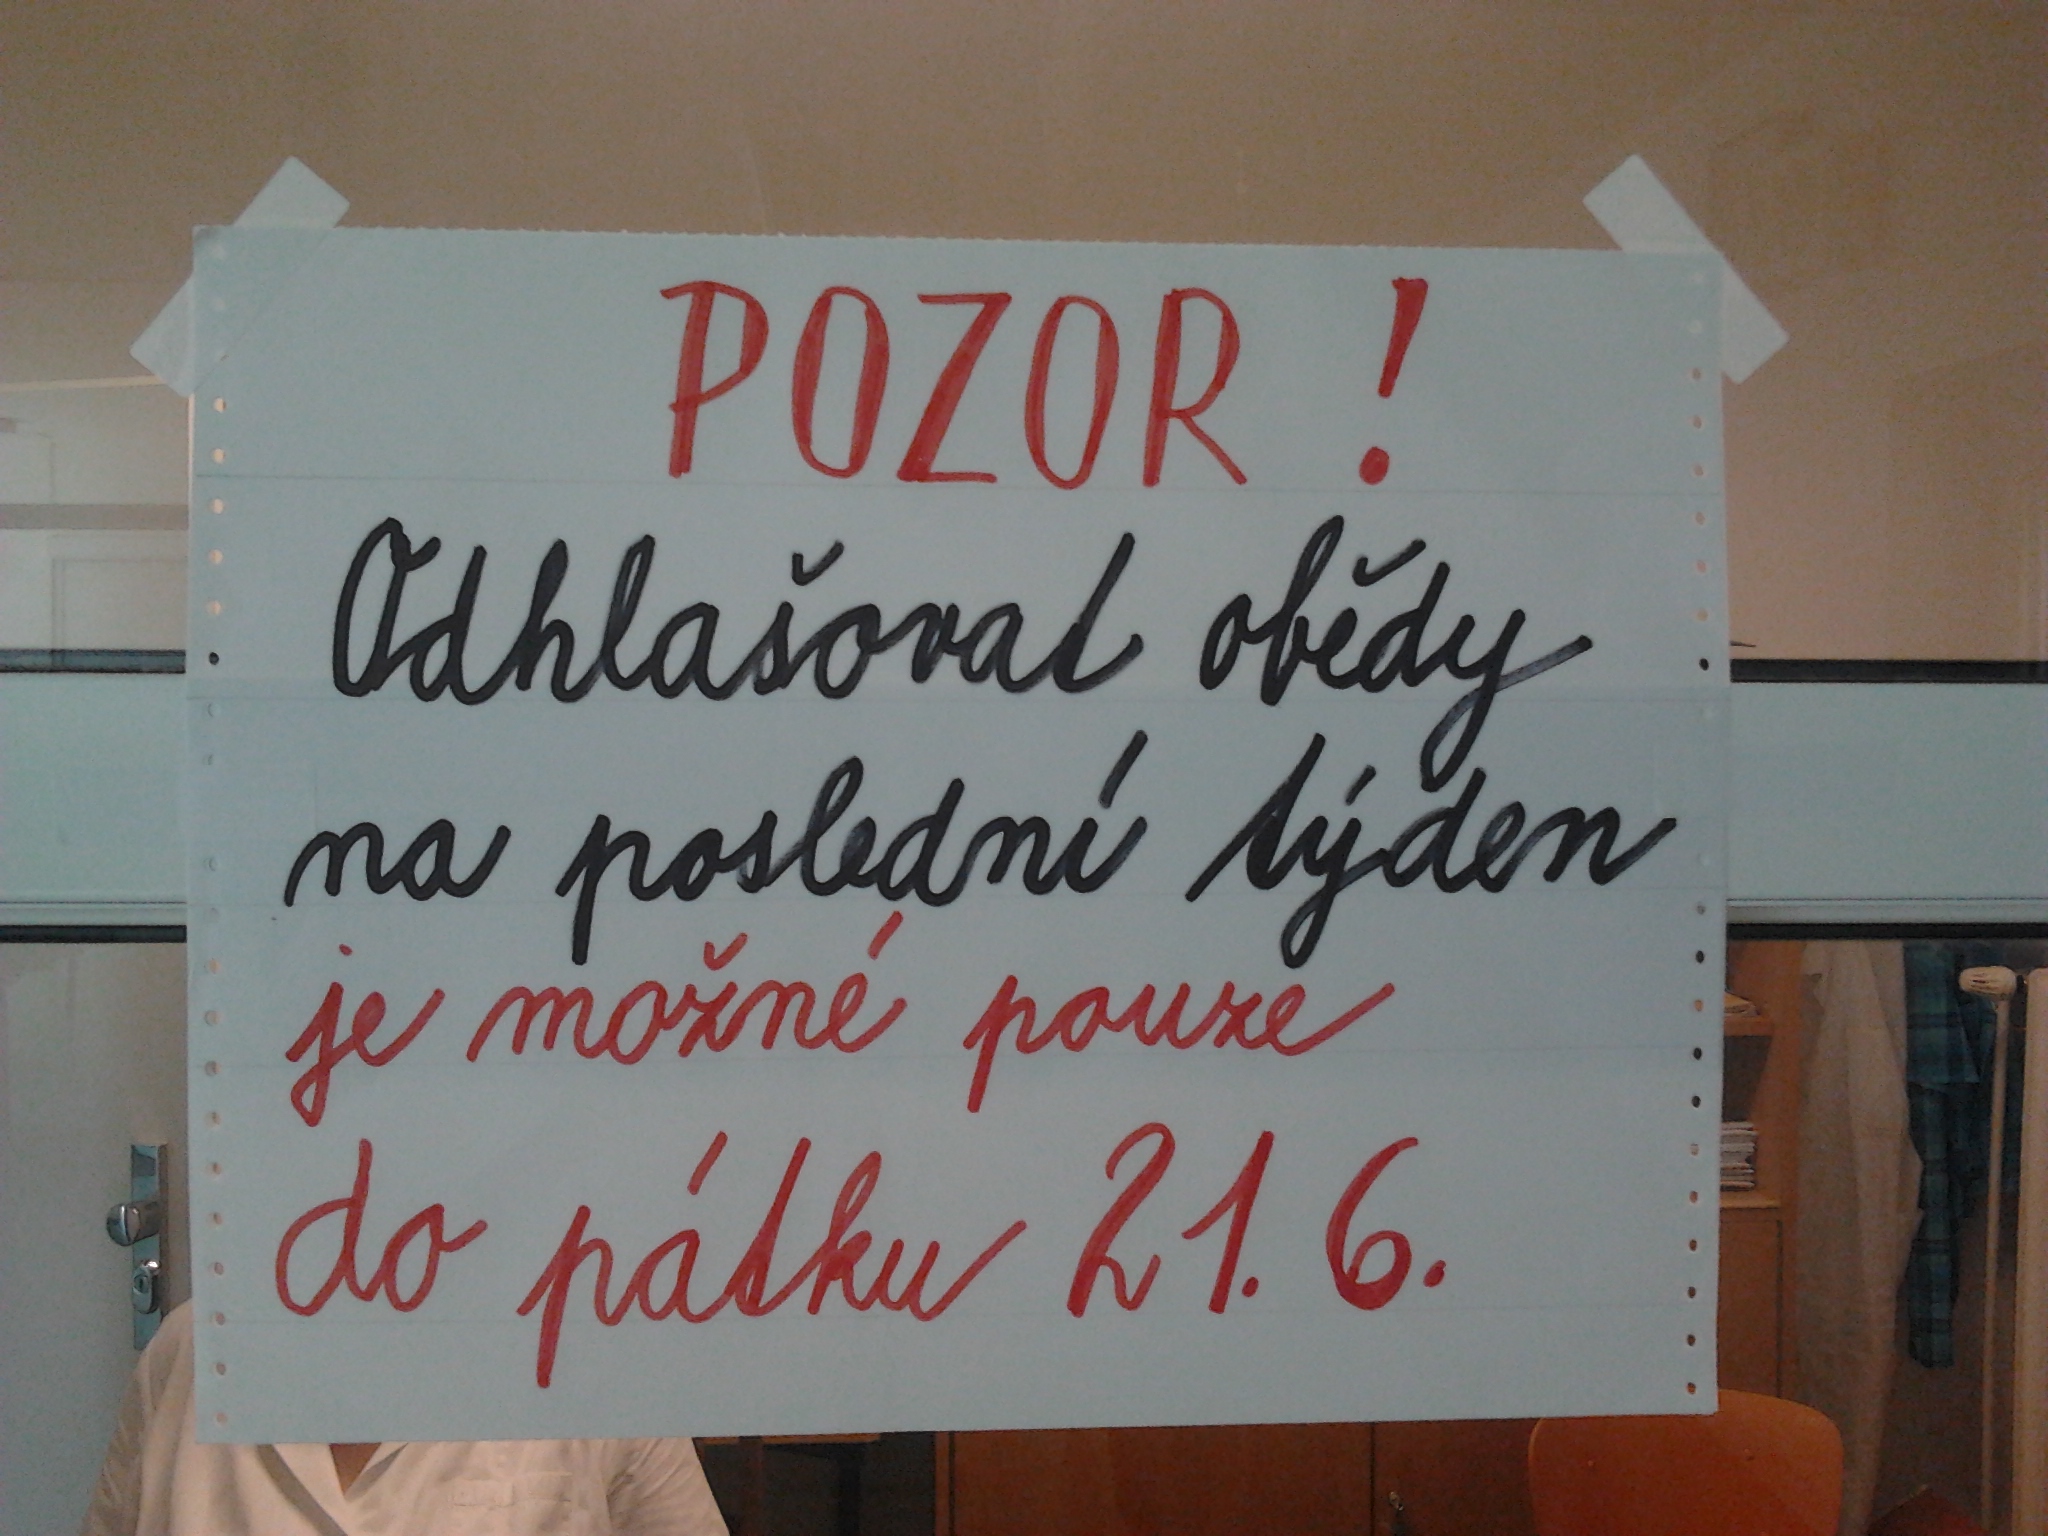 POZOR !
Odhlašovat obědy
na poslední týden
je možné pouze
do pátku 21. 6.